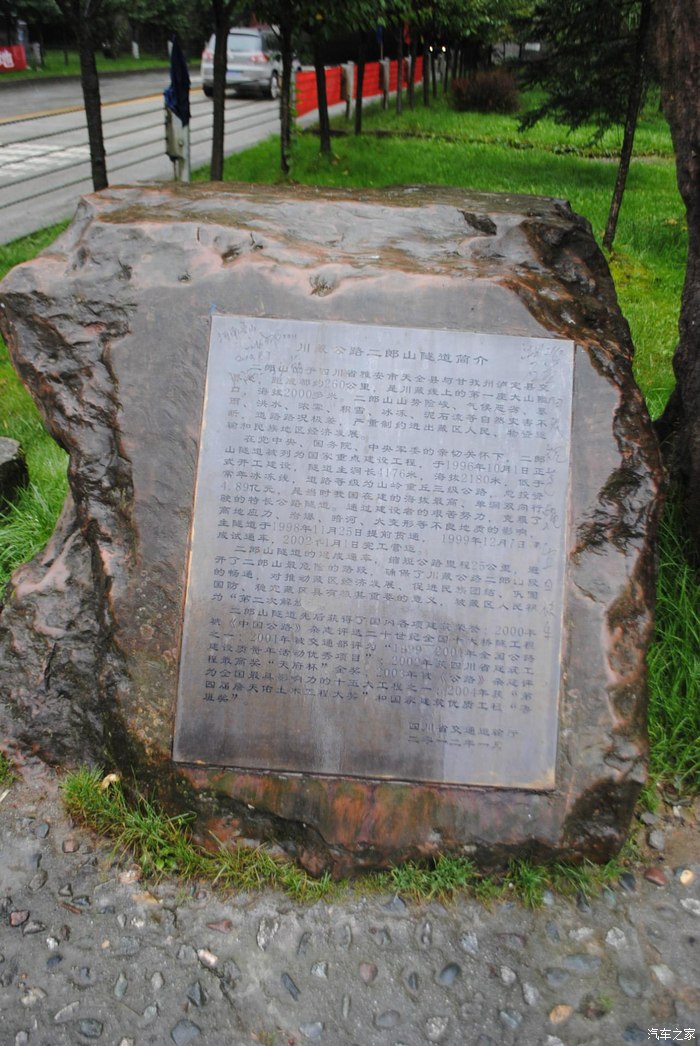 川藏公路二郎山隧道简介
二郎山位于四川省雅安市天全县与甘孜州泸定县交
界处，距成都约260公里，是川藏线上的第一座大山
海拔2000多米，二郎山山势险峻、气候恶劣，暴
雨、洪水、浓雾、积雪、冰冻、泥石流等自然灾害不
断，道路路况极差，严重制约进出藏区人民、物资运
输和民族地区经济发展。
在党中央、国务院、中央军委的亲切关怀下，二郎
山隧道被列为国家重点建设工程，于1996年10月1日正
式开工建设，隧道主洞长4176米，海拔2180米，低于
常年冰冻线，道路等级为山岭重丘三级公路，总投资
4.89亿元，是当时我国在建的海拔最高、单洞双向行
驶的特长公路隧道。通过建设者的艰苦努力，克服了
高地应力、岩爆、暗河、大变形等不良地质的影响，
主隧道于1998年11月25日提前贯通，1999年12月7日
成试通车，2002年1月1日完工营运。
二郎山隧道的建成通车，缩短公路里程25公里，避
开了二郎山最危险的路段，确保了川藏公路二郎山段
的畅通，对推动藏区经济发展、促进民族团结、巩固
国防、稳定藏区具有极其重要的意义，被藏区人民称
为“第二次解放”。
二郎山隧道先后获得了国内各项建筑荣誉：2000年
被《中国公路》杂志评选二十世纪全国十大桥隧工程
之一；2001年被交通部评为“1999—2001年全国公路
建设质量年活动优秀项目”；2002年获四川省建筑工
程最高奖“天府杯”金奖；2003年被《公路》杂志评
为全国最具影响力的十五大工程之一；2004年获“第
四届詹天佑土木工程大奖”和国家建筑优质工程“鲁
班奖”
四川省交通运输厅
二零一二年一月
汽车之家